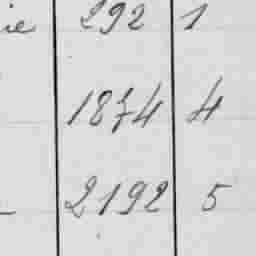 ie 292 1
1874 4
2192 5